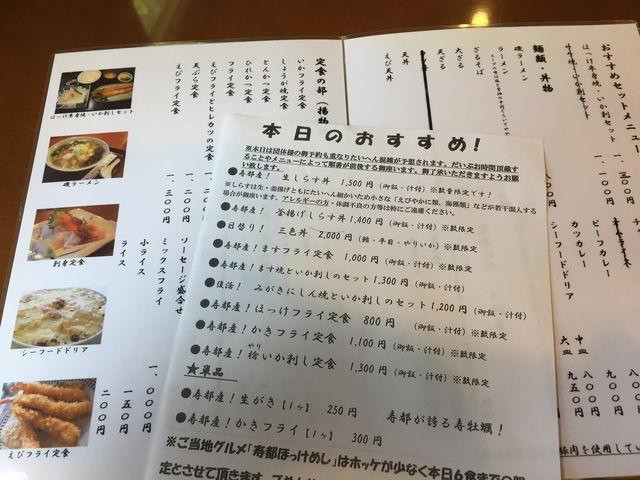 本日のおすすめ!
※本日は団体様の御予約も重なりたいへん混雑が予想されます。だいぶお時間頂戴す
ることやメニューによって順番が前後する御座います。御了承いただきますようお願
い致します。
●寿都産! 生しらす丼 1,500円(御飯・汁付)※数限定です!
※しらすは生・釜揚げともにたいへん細かいため小さな「えびやかに類、海藻類」などが若干混入する
場合が御座います。アレルギーの方・体調不良の方等は特にご遠慮ください。
●寿都産! 釜揚げしらす丼 1,400円(御飯・汁付)※数限定
●日替り! 三色丼 2,000円
●寿都産! ますフライ定食 1,000円(御飯・汁付)※数限定
●寿都産! ます焼といか刺しのセット 1,300円(御飯・汁付)
●復活! みがきにしん焼といか刺しのセット 1,200円(御飯・汁付)
●寿都産! ほっけフライ定食 800円(御飯・汁付)※数限定
●寿都産! かきフライ定食 1,100円(御飯・汁付)※数限定
●寿都産! 槍いか刺し定食 1,300円(御飯・汁付)※数限定
やり
★単品
●寿都産! 生がき【1ヶ】 250円
●寿都産! かきフライ【1ヶ】 300円
寿都が誇る寿牡蠣!
※ご当地グルメ「寿都ほっけめし」はホッケが少なく本日6食まで
定とさせて頂きます。
おすすめセットメニュー
ほっけ半身焼・いか刺しセット
麺飯・丼物
磯ラーメン
ラーメン
ざるそば
大ざる
天ざる
天丼
えび天丼
ビーフカレー
カツカレー
シーフードドリア
中皿
大皿
八〇〇
九五〇
定食の部(揚物
いかフライ定食
しょうが焼定食
とんかつ定食
ひれかつ定食
フライ定食
えびフライとヒレカツの定食
天ぷら定食
えびフライ定食
ソーセージ盛合せ
ミックスフライ
小ライス
ライス
一、〇〇〇円
一五〇円
二〇〇円
ほっけ半身焼・いか刺しセット
磯ラーメン
刺身定食
シーフードドリア
えびフライ定食